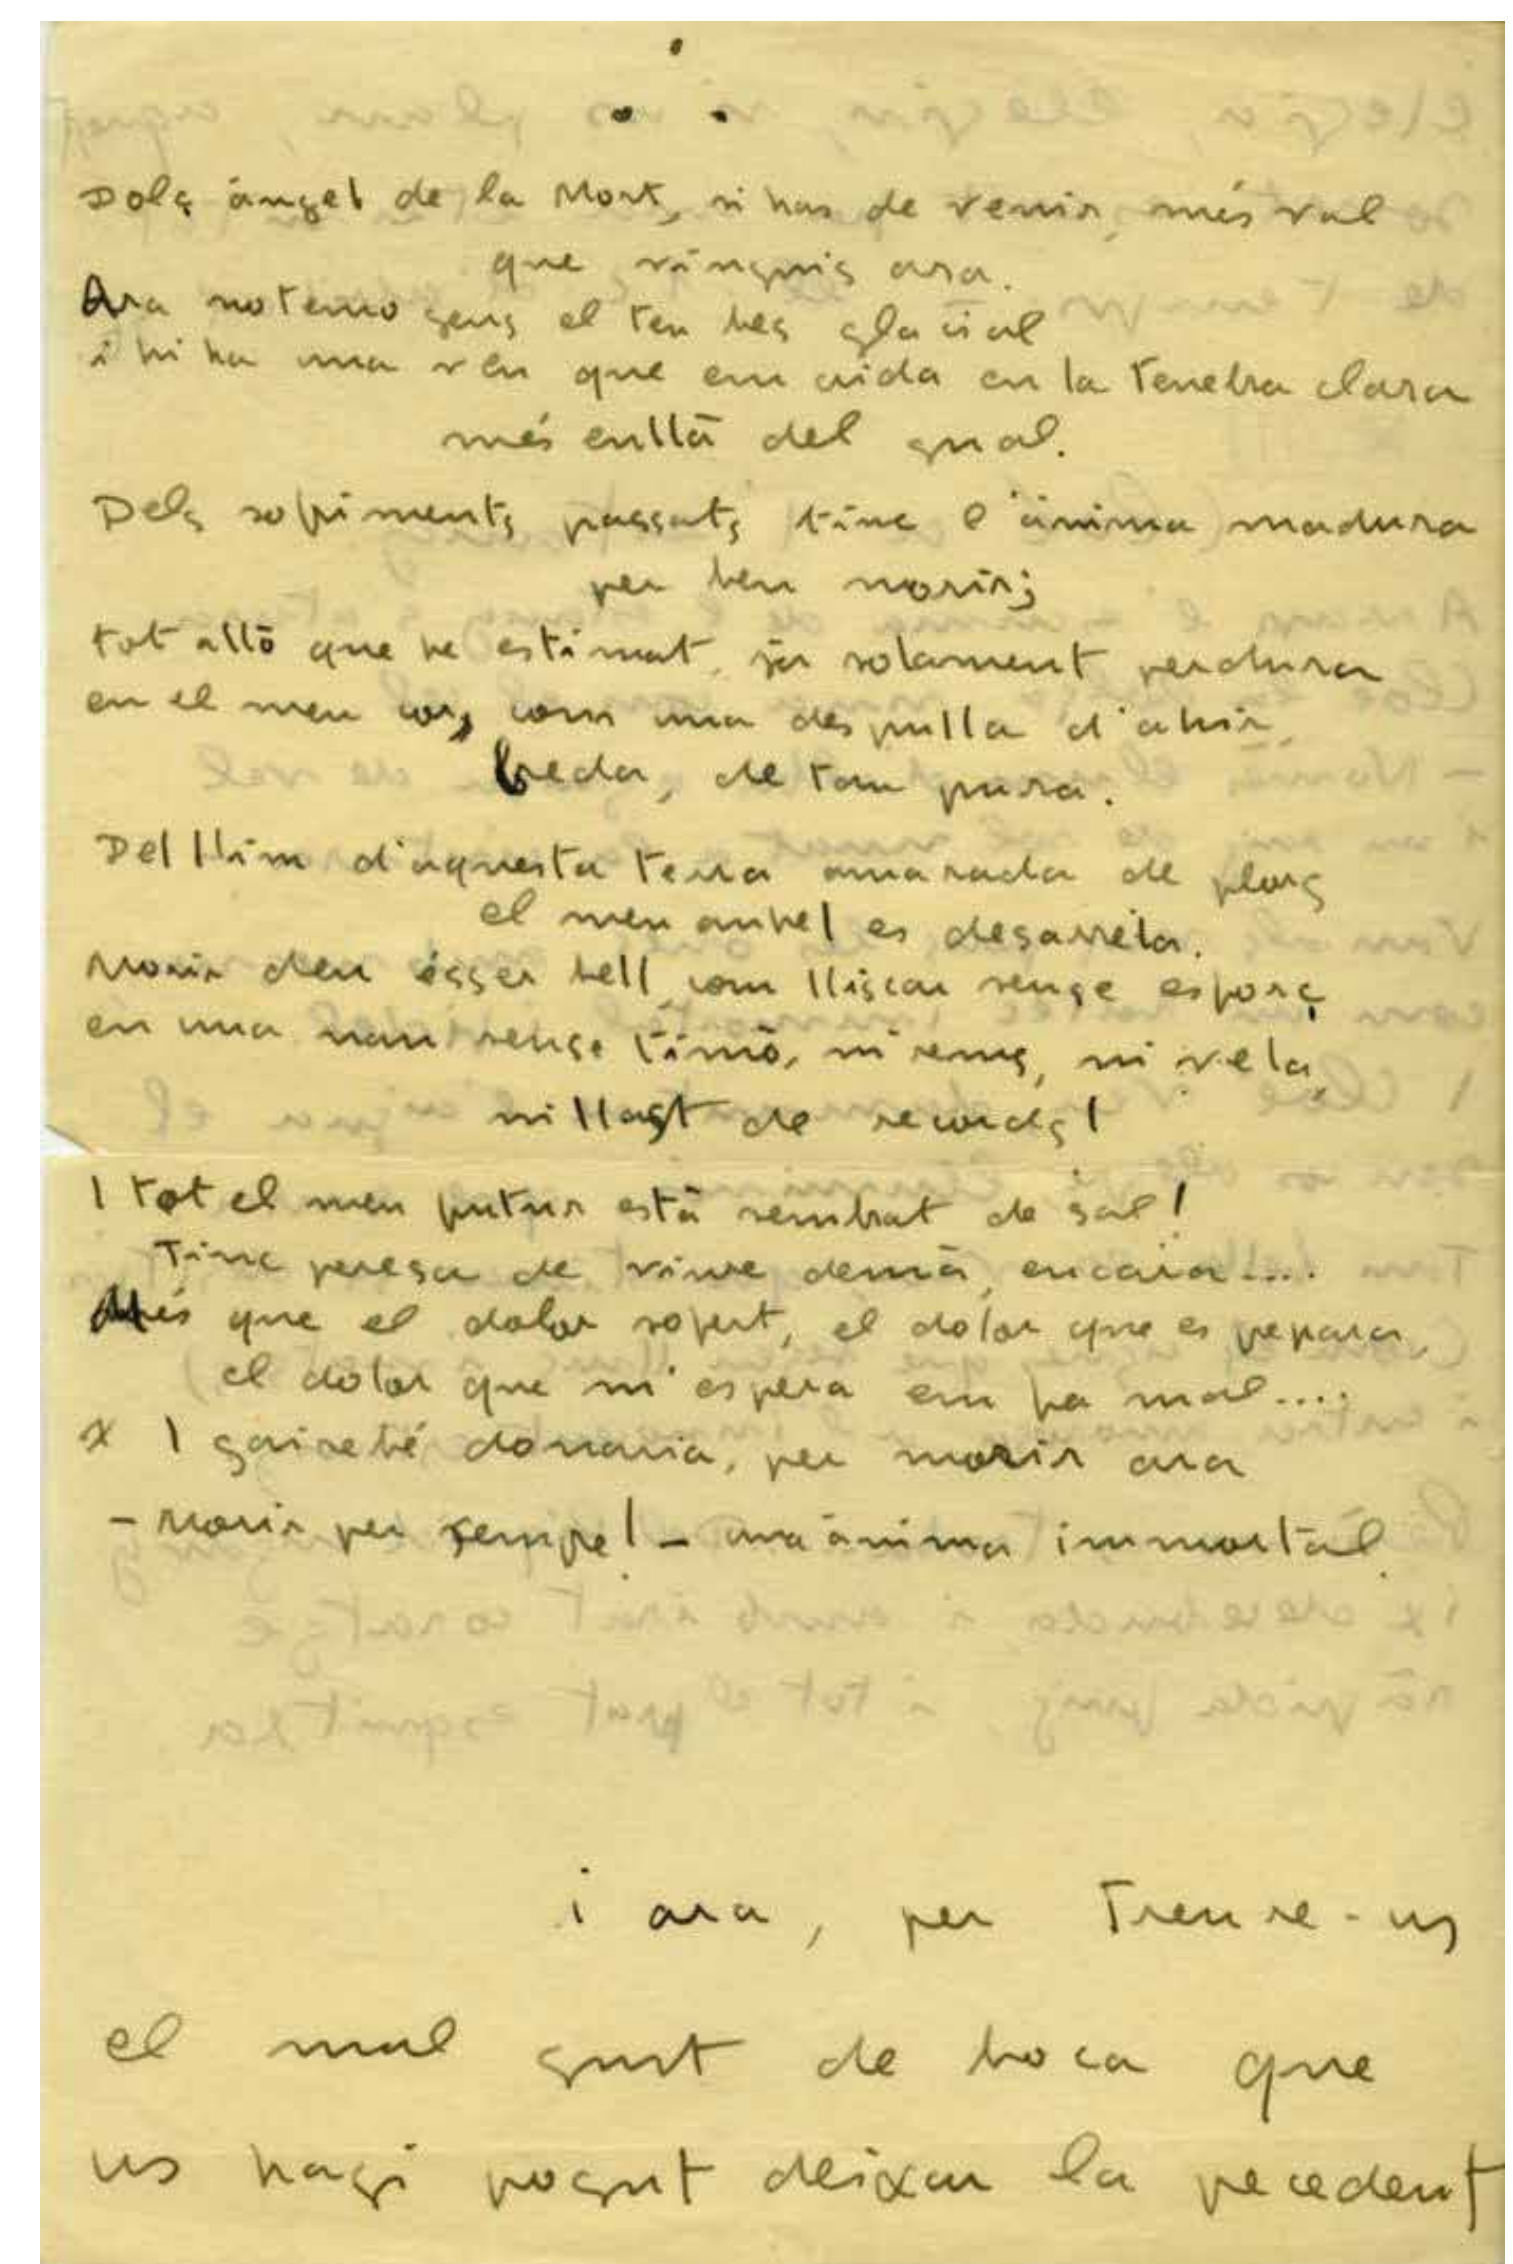 Dolç àngel de la Mort, si has de venir, més val
que vinguis ara.
Ara no temo gens el teu bes glacial
i hi ha una veu que em crida en la tenebra clara
més enllà del gual.
Dels sofriments passats tinc l'ànima madura
per ben morir;
tot allò que he estimat ja solament perdura
en el meu cor, com una despulla d'ahir,
freda, de tan pura.
Del llim d'aquesta terra amarada de plors
el meu anhel es desarrela.
Morir deu ésser bell, com lliscar sense esforç
en una nau sense timó, ni rems, ni vela,
ni llast de records!
I tot el meu futur està sembrat de sal!
Tinc peresa de viure demà, encara....
Més que el dolor sofert, el dolor que es prepara,
el dolor que m'espera em fa mal....
x I gairebé donaria, per morir ara
- Morir per sempre! - una ànima immortal.
i ara, per treure-us
el mal gust de boca que
us hagi pogut deixar la precedent